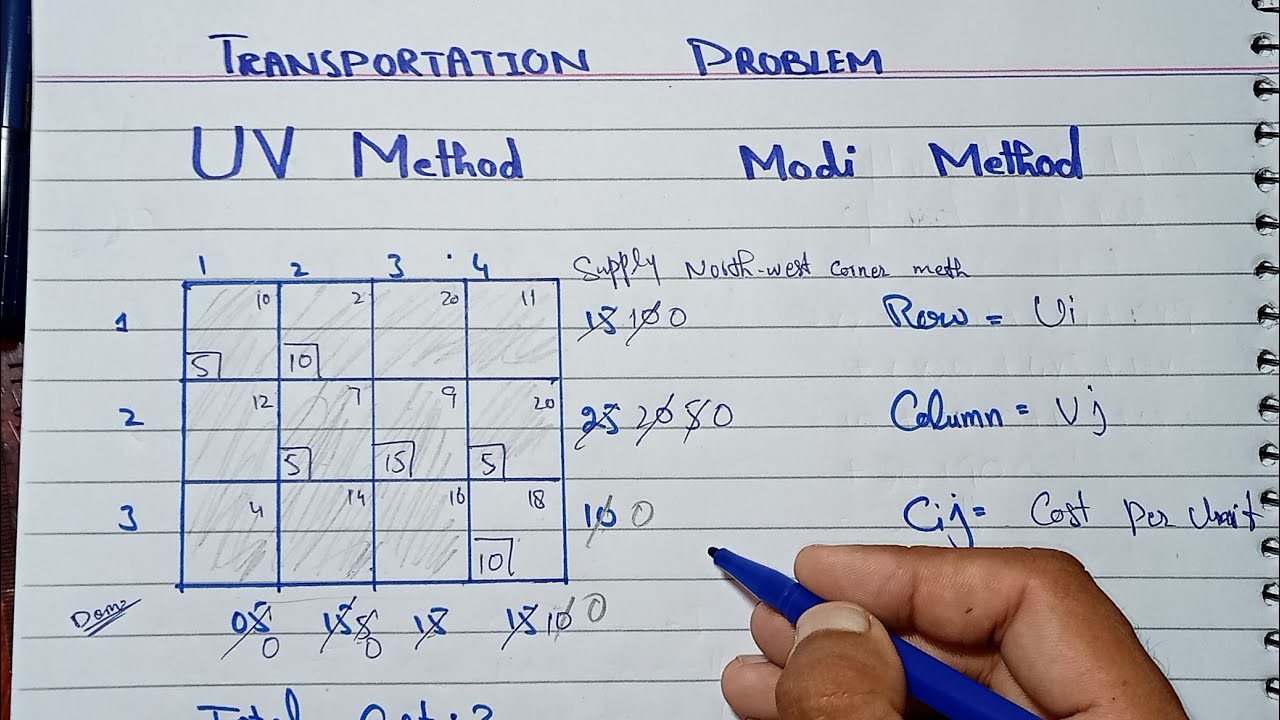 TRANSPORTATION PROBLEM
UV Method Modi Method
1 2 3 4 Supply North-west corner meth
10 2 20 11
1 15 10 0 Row = Ui
5 10
12 7 9 20
2 25 20 5 0 Column = Vj
5 15 5
4 14 16 18
3 10 0 Cij = Cost Per Unit
10
05 15 5 15 15 10 0
0 0
Total